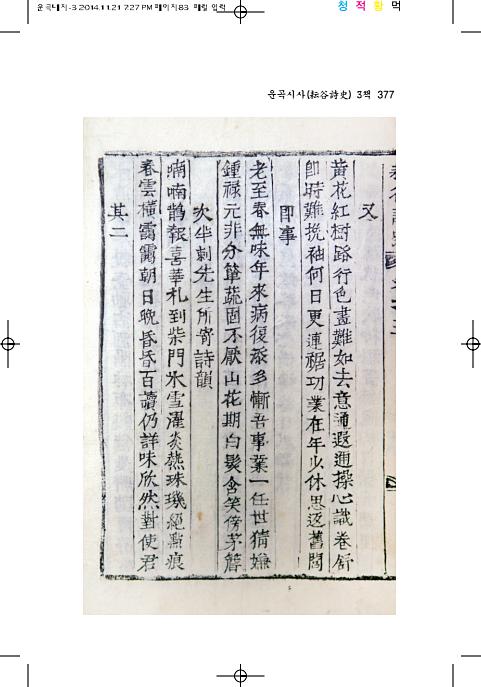 운곡내지-3 2014.11.21 7:27 PM 페이지83 매월 입력
청 적 황 먹
운곡시사(耘谷詩史) 3책 377
又
黃花紅樹路行色盡難如去意通遐邇操心識卷舒
卽時難挽袖何日更連裾功業在年少休思返舊閭
卽事
老至春無味年來病復添多慚吾事業一任世猜嫌
鍾祿元非分簞蔬固不厭山花期白髮含笑傍茅簷
次半刺先生所寄詩韻
喃喃鵲報喜華札到柴門氷雪濯炎熱珠璣絕點痕
春雲橫靄靄朝日晩昏昏百讀仍詳味欣然對使君
其二